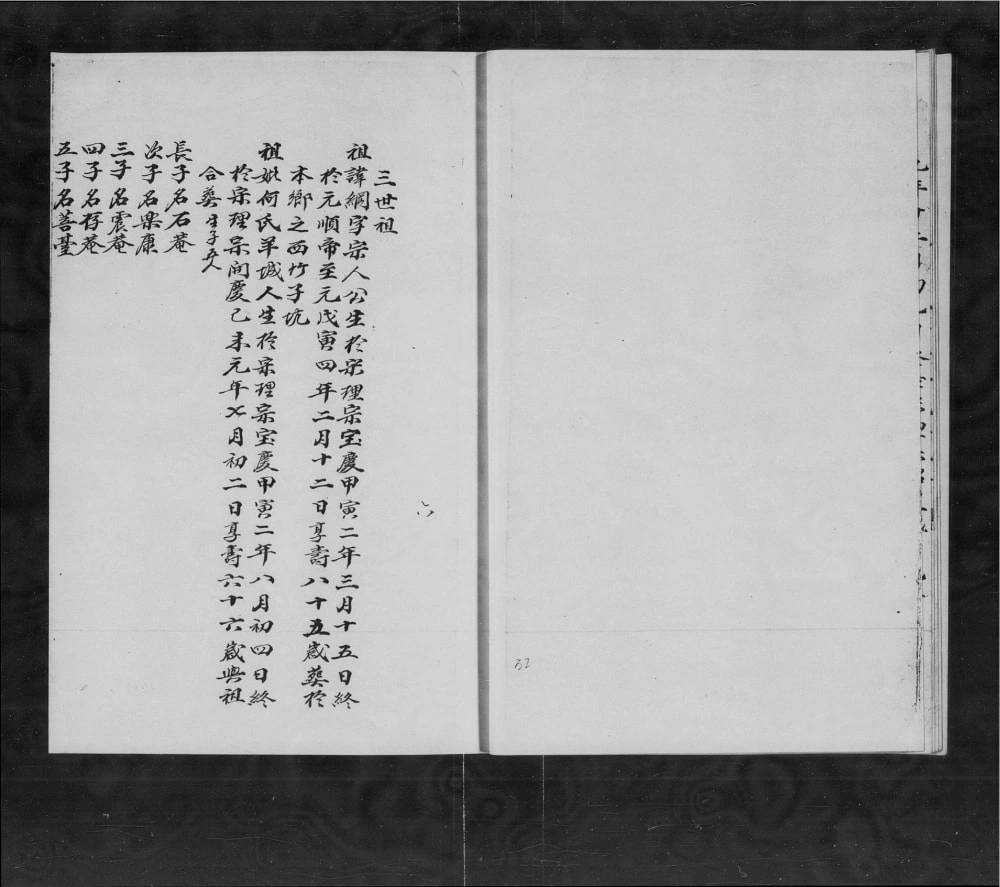 三世祖
祖諱綱字宗人公生於宋理宗宝慶甲寅二年三月十五日終
於元順帝至元戊寅四年二月十二日享壽八十五歲葬於
本鄉之西竹子坑
祖妣何氏羊城人生於宋理宗宝慶甲寅二年八月初四日終
於宋理宗開慶己未元年七月初二日享壽六十六歲與祖
合葬生子五人
長子名石菴
次子名樂康
三子名震菴
四子名存菴
五子名菩臺
六
32